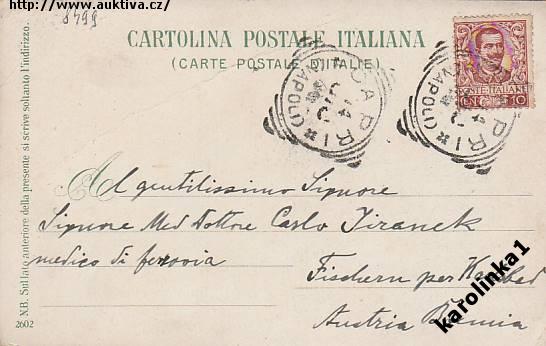 http://www.auktiva.cz/
8499
CARTOLINA POSTALE ITALIANA
(CARTE POSTALE D'ITALIE)
CAPRI
(NAPOLI)
CAPRI
(NAPOLI)
POSTE ITALIANE
CENT. 10
N.B. Sul lato anteriore della presente si scrive soltanto l'indirizzo.
2602
A
Al gentilissimo Signore
Signore Med Dottore Carlo Jiranek
medico di ferrovia
Fischern per
Austria Bömia
karolinka1